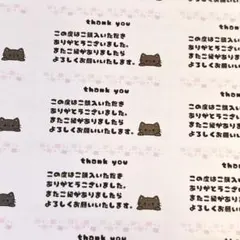 thank you
この度はご購入いただき
ありがとうございました。
またご縁がありましたら
よろしくお願いいたします。
thank you
この度はご購入
ありがとうござ
またご縁があり
よろしくお願い
thank you
この度はご購入いただき
ありがとうございました。
またご縁がありましたら
よろしくお願いいたします。
thank you
この度はご購入
ありがとうござ
またご縁があり
よろしくお願い
thank you
この度はご購入いただき
ありがとうございました。
またご縁がありましたら
よろしくお願いいたします。
thank you
この度はご購入
ありがとうござ
またご縁があり
よろしくお願い